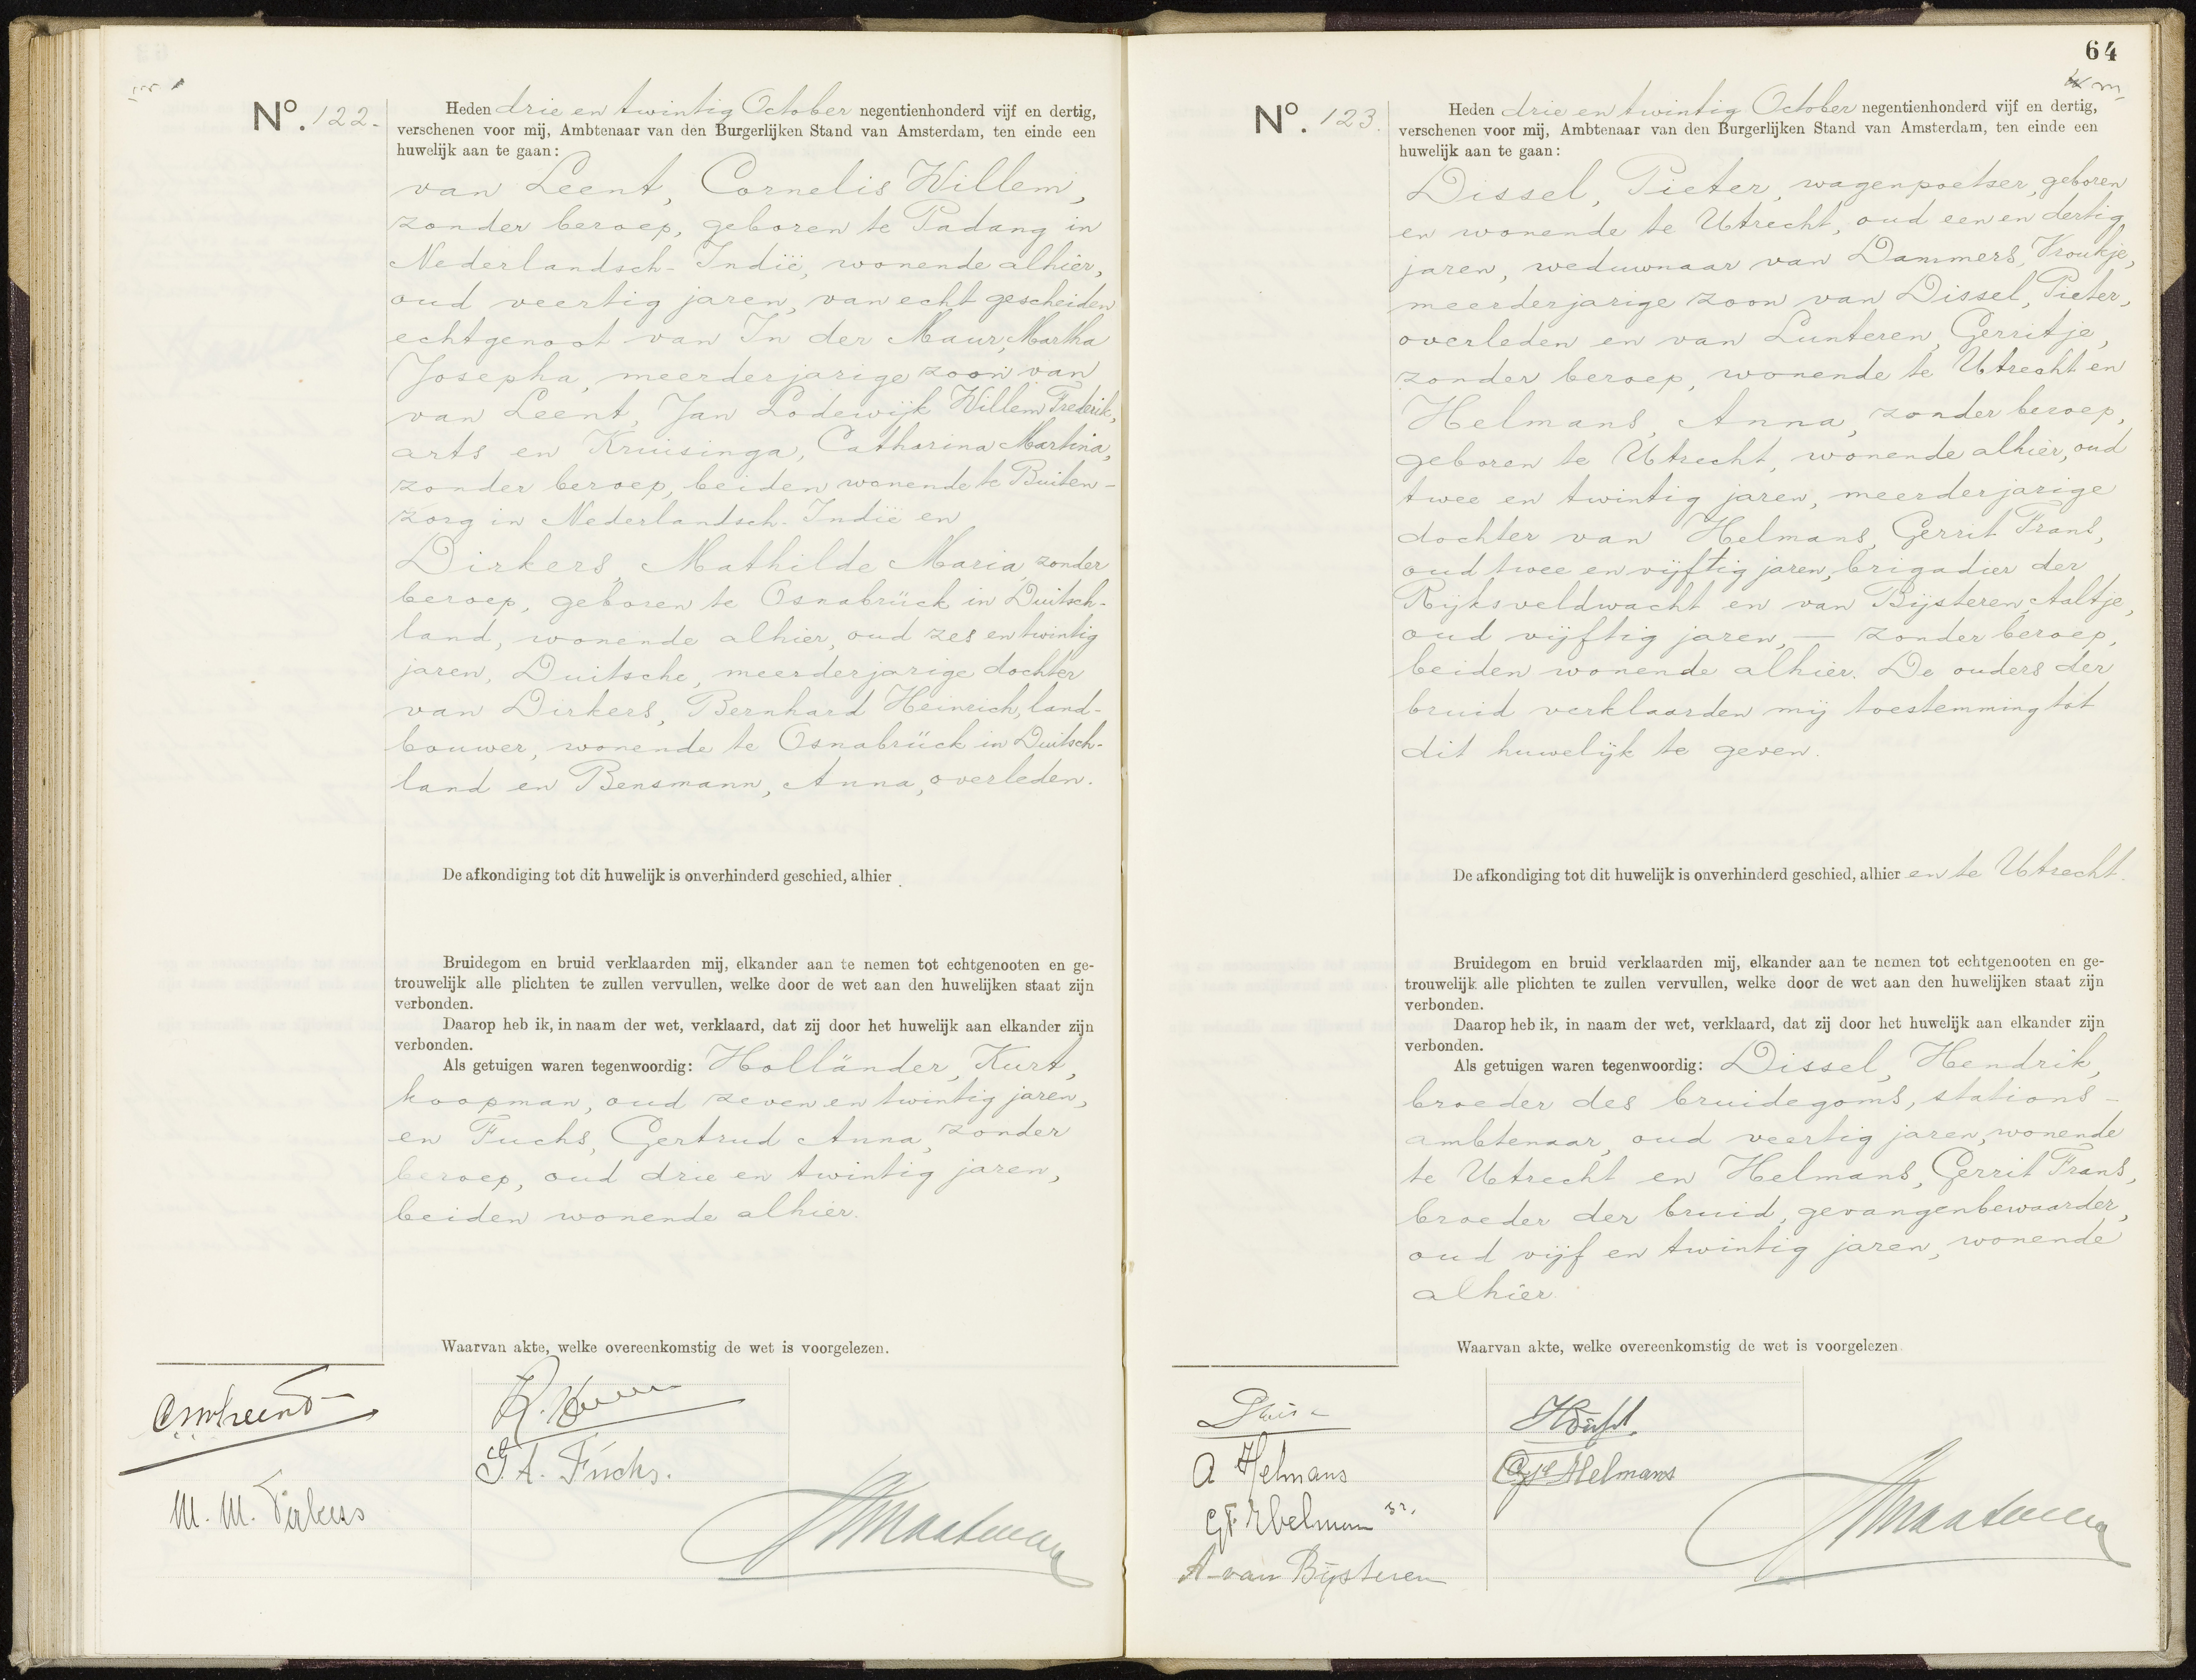 No. 122.
Heden drie en twintig October negentienhonderd vijf en dertig,
verschenen voor mij, Ambtenaar van den Burgerlijken Stand van Amsterdam, ten einde een
huwelijk aan te gaan:
van Leent, Cornelis Willem,
zonder beroep, geboren te Padang in
Nederlandsch-Indië, wonende alhier,
oud veertig jaren, van echt gescheiden
echtgenoot van In der Maur, Martha
Josepha, meerderjarige zoon van
van Leent, Jan Lodewijk Willem Frederik,
arts en Kruisinga, Catharina Martina,
zonder beroep, beiden wonende te Buiten-
zorg in Nederlandsch-Indië en
Dirkers, Mathilde Maria, zonder
beroep, geboren te Osnabrück in Duitsch-
land, wonende alhier, oud zes en twintig
jaren, Duitsche, meerderjarige dochter
van Dirkers, Bernhard Heinrich, land-
bouwer, wonende te Osnabrück in Duitsch-
land en Bensmann, Anna, overleden.
De afkondiging tot dit huwelijk is onverhinderd geschied, alhier.
Bruidegom en bruid verklaarden mij, elkander aan te nemen tot echtgenooten en ge-
trouwelijk alle plichten te zullen vervullen, welke door de wet aan den huwelijken staat zijn
verbonden.
Daarop heb ik, in naam der wet, verklaard, dat zij door het huwelijk aan elkander zijn
verbonden.
Als getuigen waren tegenwoordig: Holländer, Kurt,
koopman, oud zeven en twintig jaren,
en Fuchs, Gertrud Anna, zonder
beroep, oud drie en twintig jaren,
beiden wonende alhier.
Waarvan akte, welke overeenkomstig de wet is voorgelezen.
G. A. Fuchs.
M. M. Dirkers
64
No. 123.
Heden drie en twintig October negentienhonderd vijf en dertig,
verschenen voor mij, Ambtenaar van den Burgerlijken Stand van Amsterdam, ten einde een
huwelijk aan te gaan:
Dissel, Pieter, wagenpoetser, geboren
en wonende te Utrecht, oud een en dertig
jaren, weduwnaar van Dammers, Froukje,
meerderjarige zoon van Dissel, Pieter,
overleden en van Lunteren, Gerritje,
zonder beroep, wonende te Utrecht en
Helmans, Anna, zonder beroep,
geboren te Utrecht, wonende alhier, oud
twee en twintig jaren, meerderjarige
dochter van Helmans, Gerrit Frans,
oud twee en vijftig jaren, brigadier der
Rijksveldwacht en van Bijsteren, Aaltje,
oud vijftig jaren, — zonder beroep,
beiden wonende alhier. De ouders der
bruid verklaarden mij toestemming tot
dit huwelijk te geven.
De afkondiging tot dit huwelijk is onverhinderd geschied, alhier en te Utrecht.
Bruidegom en bruid verklaarden mij, elkander aan te nemen tot echtgenooten en ge-
trouwelijk alle plichten te zullen vervullen, welke door de wet aan den huwelijken staat zijn
verbonden.
Daarop heb ik, in naam der wet, verklaard, dat zij door het huwelijk aan elkander zijn
verbonden.
Als getuigen waren tegenwoordig: Dissel, Hendrik,
broeder des bruidegoms, stations-
ambtenaar, oud veertig jaren, wonende
te Utrecht en Helmans, Gerrit Frans,
broeder der bruid, gevangenbewaarder,
oud vijf en twintig jaren, wonende
alhier.
Waarvan akte, welke overeenkomstig de wet is voorgelezen.
A Helmans
Helmans
A van Bijsteren